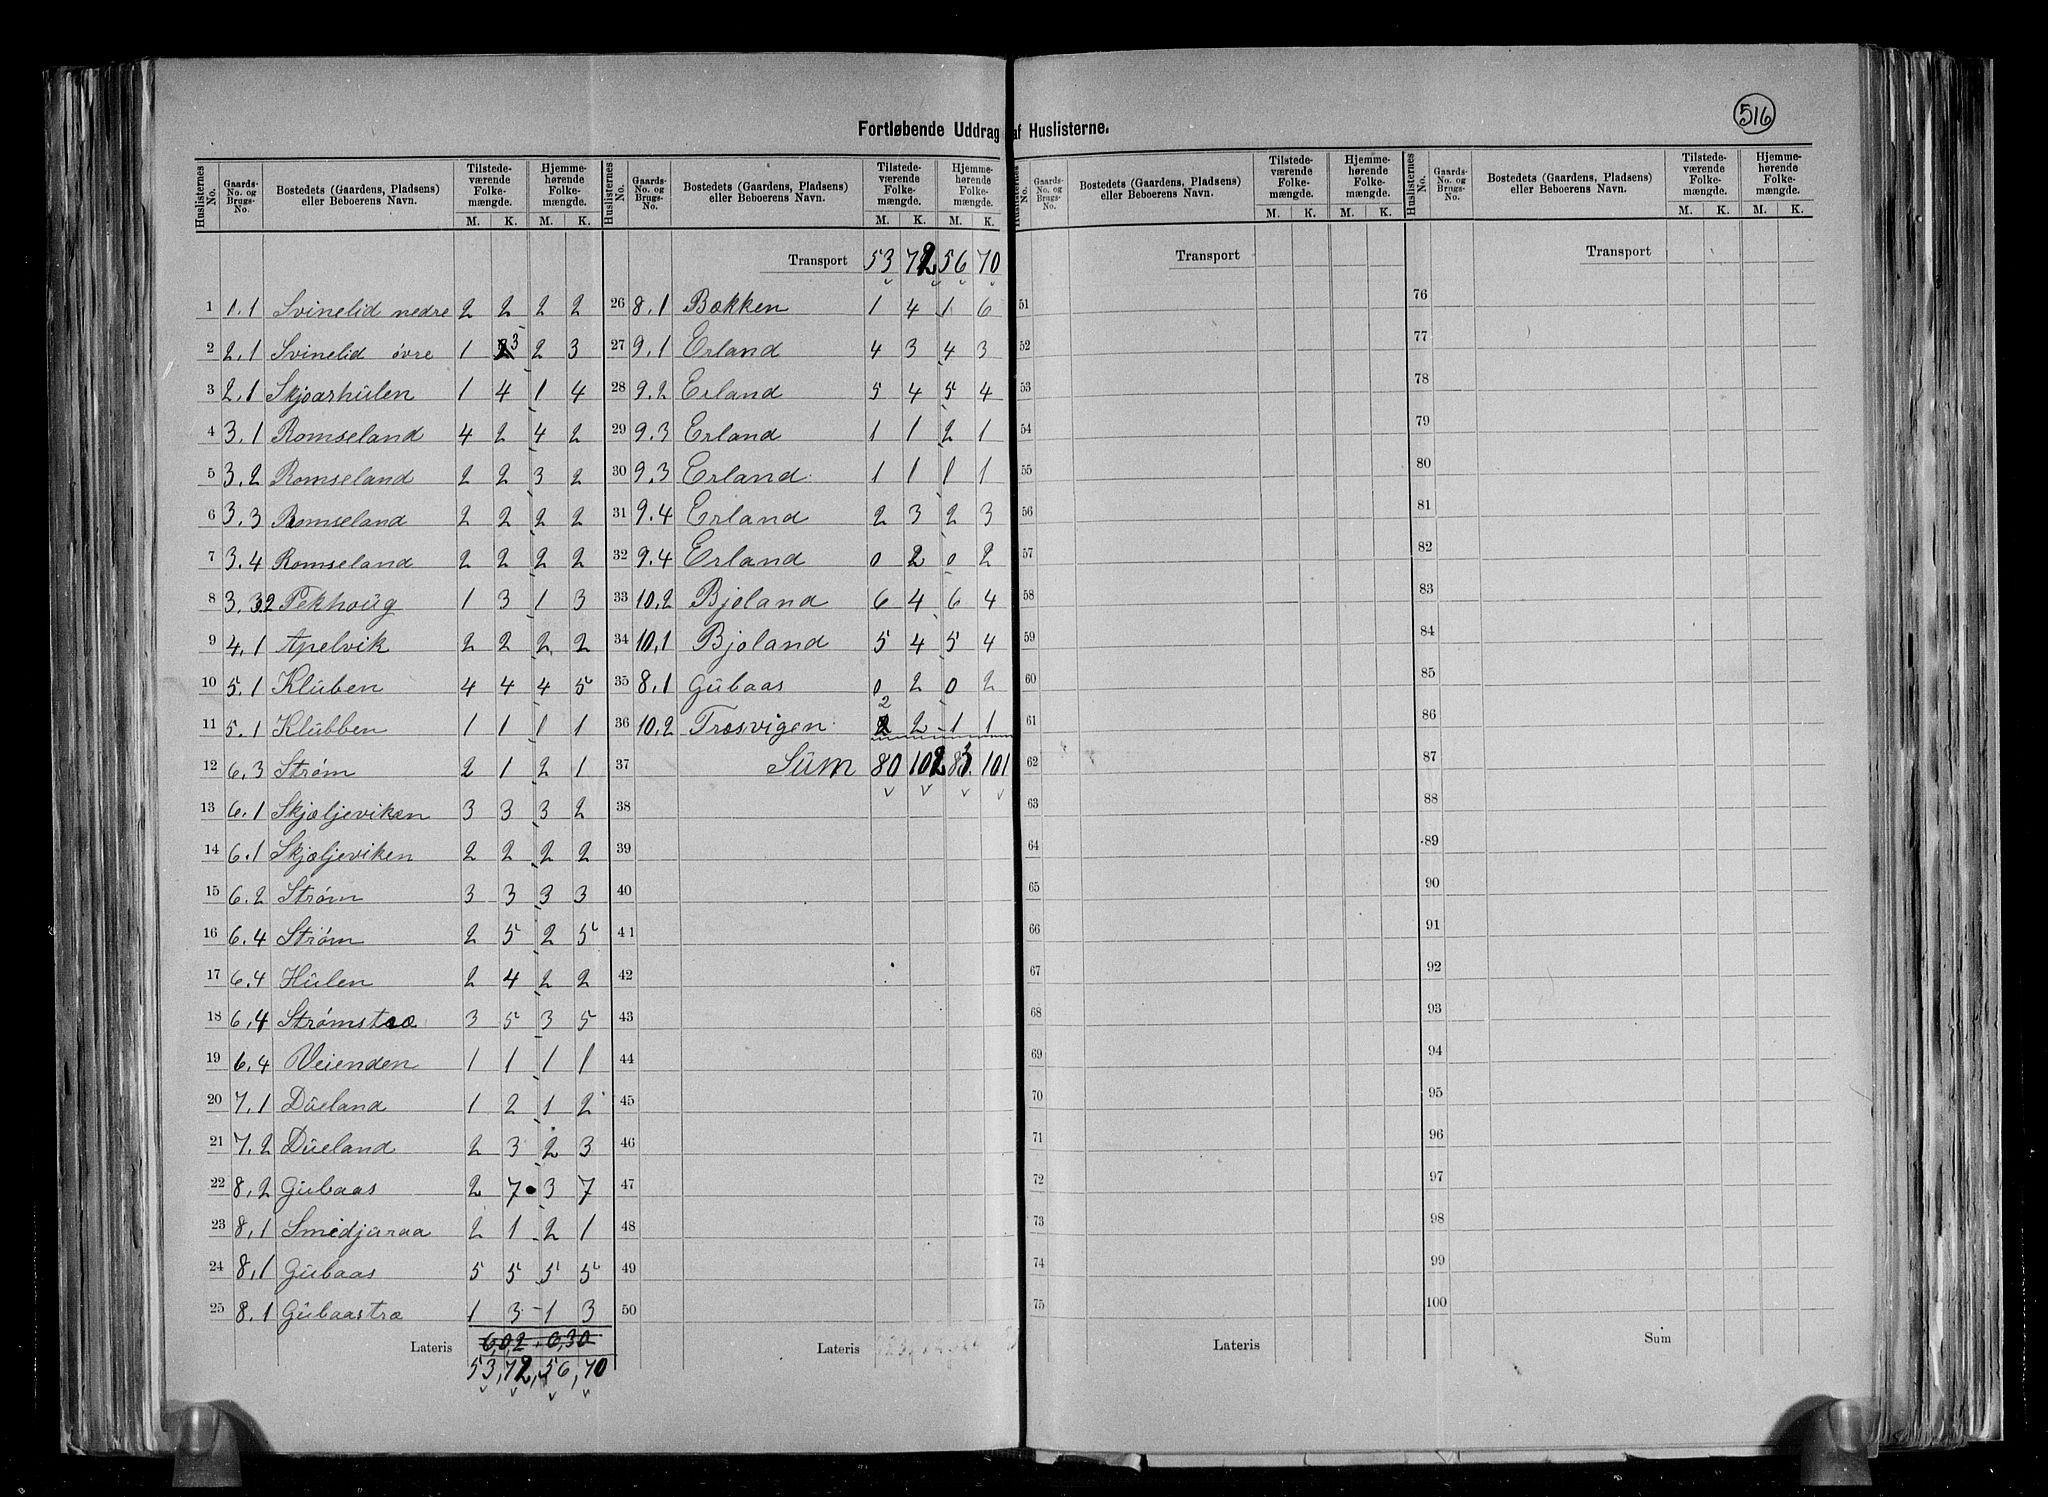 516
Fortløbende Uddrag af Huslisterne.
Huslisternes No. | Gaards-No. og Brugs-No. | Bostedets (Gaardens, Pladsens) eller Beboerens Navn. | Tilstedeværende Folkemængde. M. K. | Hjemmehørende Folkemængde. M. K.
1 1.1 Svinelid nedre 2 2 2 2
2 2.1 Svinelid øvre 1 3 2 3
3 2.1 Skjoarhulen 1 4 1 4
4 3.1 Romseland 4 2 4 2
5 3.2 Romseland 2 2 3 2
6 3.3 Romseland 2 2 2 2
7 3.4 Romseland 2 2 2 2
8 3.32 Pekhoug 1 3 1 3
9 4.1 Apelvik 2 2 2 2
10 5.1 Kluben 4 4 4 5
11 5.1 Klubben 1 1 1 1
12 6.3 Strøm 2 1 2 1
13 6.1 Skjæljeviken 3 3 3 2
14 6.1 Skjæljeviken 2 2 2 2
15 6.2 Strøm 3 3 3 3
16 6.4 Strøm 2 5 2 5
17 6.4 Hulen 2 4 2 2
18 6.4 Strømstræ 3 5 3 5
19 6.4 Veienden 1 1 1 1
20 7.1 Dueland 1 2 1 2
21 7.2 Dueland 2 3 2 3
22 8.2 Gubaas 2 7 3 7
23 8.1 Smedjuraa 2 1 2 1
24 8.1 Gubaas 5 5 5 5
25 8.1 Gubaastræ 1 3 1 3
6,02 6,30
Lateris 53, 72, 56, 70
Huslisternes No. | Gaards-No. og Brugs-No. | Bostedets (Gaardens, Pladsens) eller Beboerens Navn. | Tilstedeværende Folkemængde. M. K. | Hjemmehørende Folkemængde. M. K.
Transport 53 72 56 70
26 8.1 Bækken 1 4 1 6
27 9.1 Erland 4 3 4 3
28 9.2 Erland 5 4 5 4
29 9.3 Erland 1 1 2 1
30 9.3 Erland 1 1 1 1
31 9.4 Erland 2 3 2 3
32 9.4 Erland 0 2 0 2
33 10.2 Bjoland 6 4 6 4
34 10.1 Bjoland 5 4 5 4
35 8.1 Gubaas 0 2 0 2
36 10.2 Træsvigen 2 2 1 1
37 Sum 80 102 83 101
38
39
40
41
42
43
44
45
46
47
48
49
50
Lateris
Huslisternes No. | Gaards-No. og Brugs-No. | Bostedets (Gaardens, Pladsens) eller Beboerens Navn. | Tilstedeværende Folkemængde. M. K. | Hjemmehørende Folkemængde. M. K.
Transport
51
52
53
54
55
56
57
58
59
60
61
62
63
64
65
66
67
68
69
70
71
72
73
74
75
Lateris
Huslisternes No. | Gaards-No. og Brugs-No. | Bostedets (Gaardens, Pladsens) eller Beboerens Navn. | Tilstedeværende Folkemængde. M. K. | Hjemmehørende Folkemængde. M. K.
Transport
76
77
78
79
80
81
82
83
84
85
86
87
88
89
90
91
92
93
94
95
96
97
98
99
100
Sum